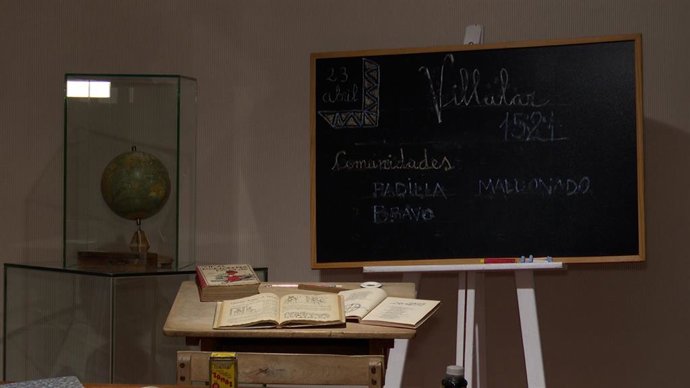 23
abril
Villalar
1521
Comunidades
PADILLA MALDONADO
BRAVO